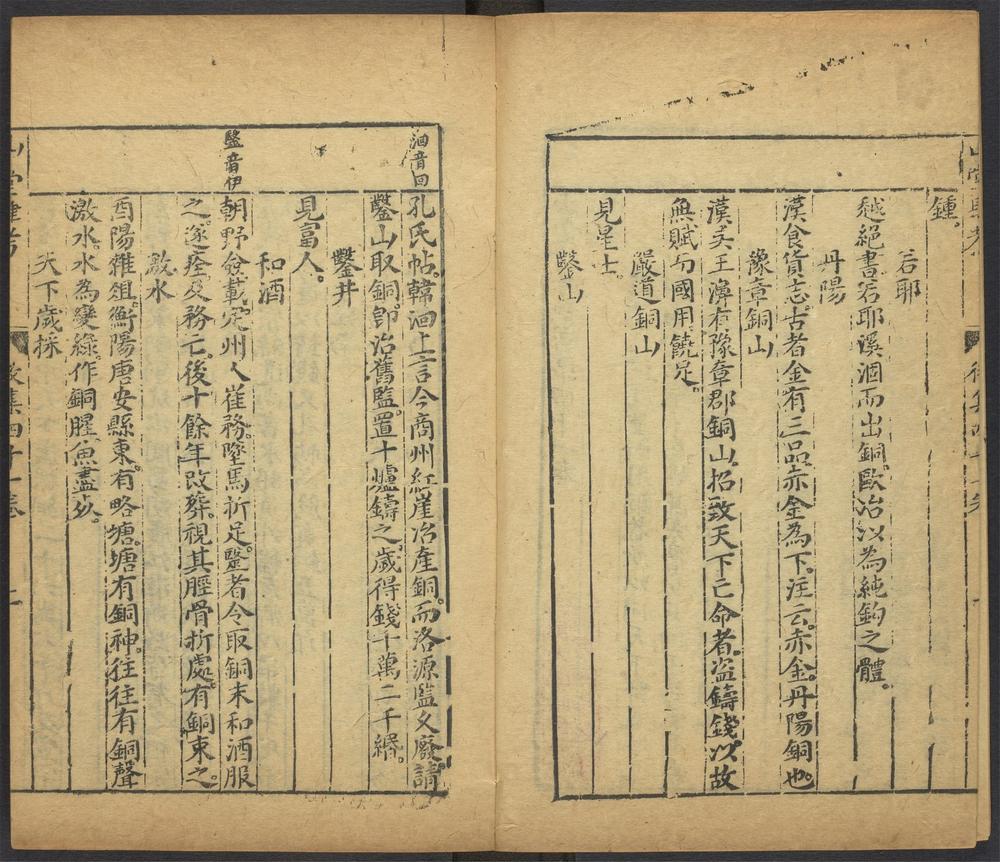 鍾
若耶
越絕書若耶溪涸而出銅歐冶以為純鈎之體
丹陽
漢食貨志古者金有三品赤金為下注云赤金丹陽銅也
豫章銅山
漢吳王濞有豫章郡銅山招致天下亡命者盜鑄錢以故
無賦而國用饒足
嚴道銅山
見星士
鑿山
洄音回
孔氏帖韓洄上言今商州紅崖冶產銅而洛源監久廢請
鑿山取銅卽治舊監置十爐鑄之歲得錢千萬二千緡
鑿井
見富人
和酒
毉音伊
朝野僉載定州人崔務墜馬折足毉者令取銅末和酒服
之遂痊及務亡後十餘年改葬視其脛骨折處有銅束之
激水
酉陽雜俎衡陽唐安縣東有略塘塘有銅神往往有銅聲
激水水為變綠作銅腥魚盡死
天下歲採